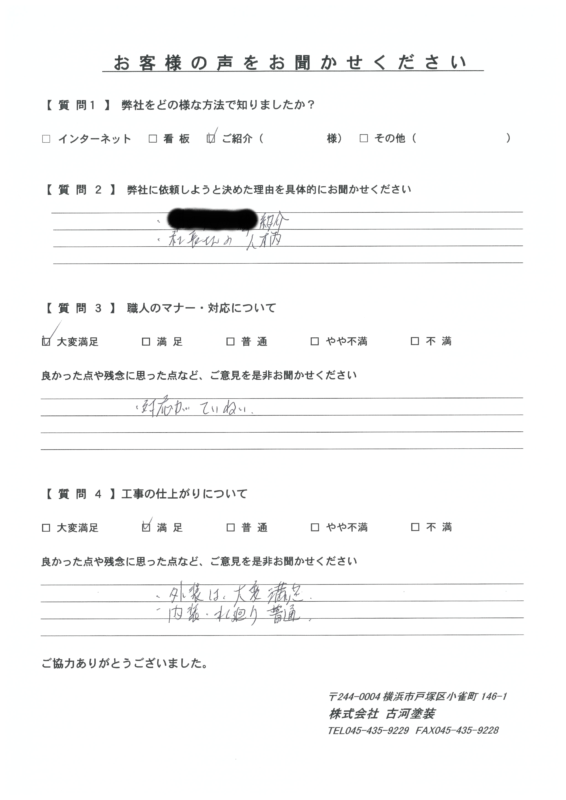 お客様の声をお聞かせください
【 質 問1 】 弊社をどの様な方法で知りましたか？
□ インターネット □ 看 板 ☑ ご紹介（ 様） □ その他（ ）
【 質 問 2 】 弊社に依頼しようと決めた理由を具体的にお聞かせください
・ 紹介
・社長さんの人柄
【 質 問 3 】 職人のマナー・対応について
☑ 大変満足 □ 満 足 □ 普 通 □ やや不満 □ 不 満
良かった点や残念に思った点など、ご意見を是非お聞かせください
・対応が ていねい.
【 質 問 4 】工事の仕上がりについて
□ 大変満足 ☑ 満 足 □ 普 通 □ やや不満 □ 不 満
良かった点や残念に思った点など、ご意見を是非お聞かせください
・外装は、大変 満足.
・内装・水廻り 普通.
ご協力ありがとうございました。
〒244-0004 横浜市戸塚区小雀町 146-1
株式会社 古河塗装
TEL045-435-9229 FAX045-435-9228